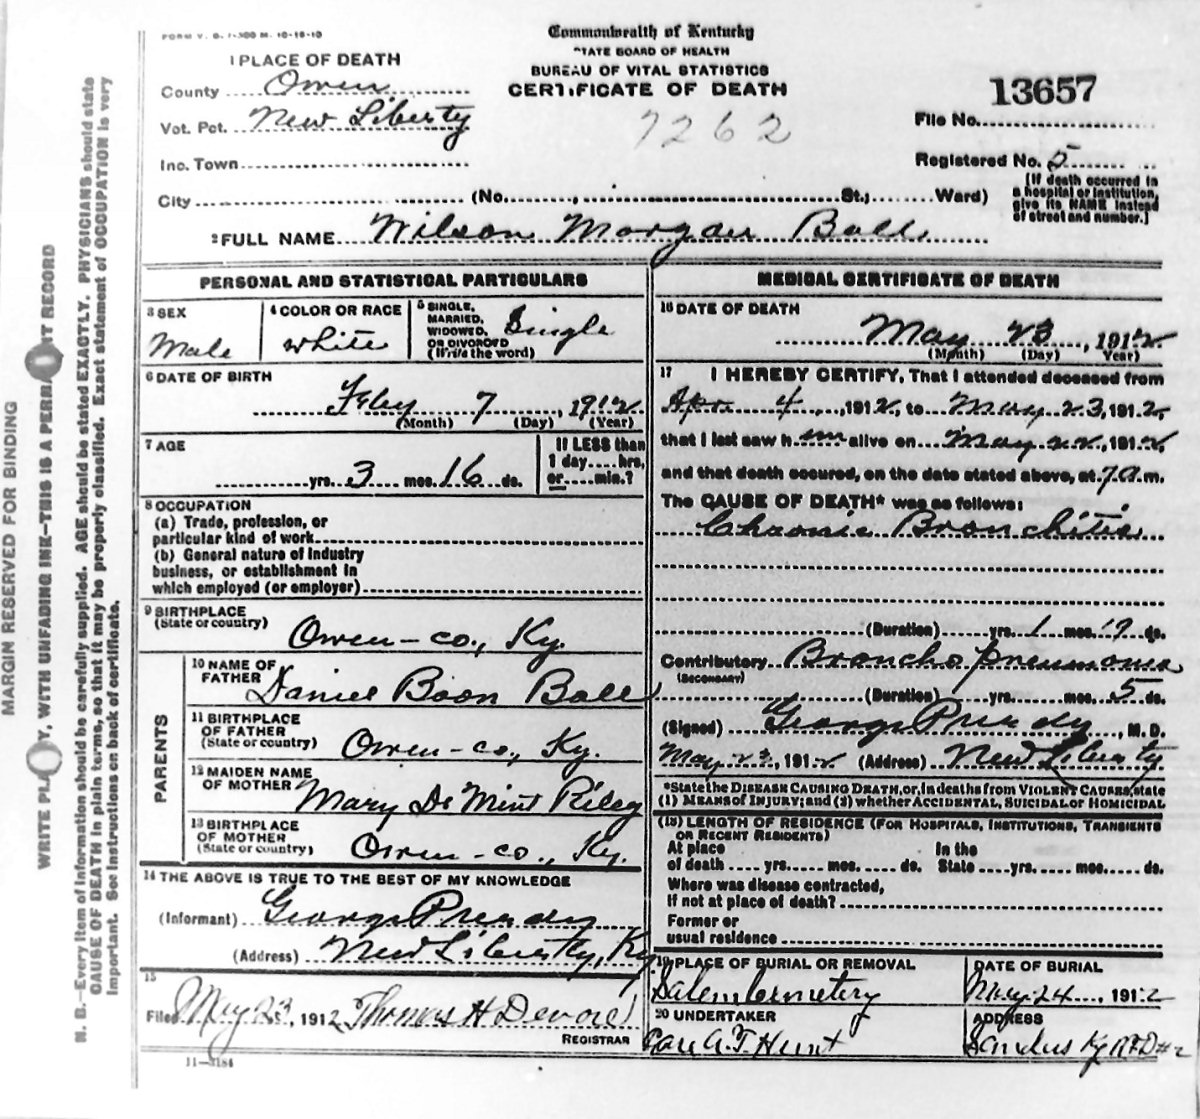 FORM V. S. 1-300 M. 10-18-10
Commonwealth of Kentucky
STATE BOARD OF HEALTH
BUREAU OF VITAL STATISTICS
CERTIFICATE OF DEATH
1 PLACE OF DEATH
County Owen
Vot. Pct. New Liberty
Inc. Town
City (No. , St.; Ward)
7262
13657
File No.
Registered No. 5
(If death occurred in
a hospital or institution,
give its NAME instead
of street and number.)
2 FULL NAME Wilson Morgan Ball
PERSONAL AND STATISTICAL PARTICULARS
3 SEX
Male
4 COLOR OR RACE
White
5 SINGLE,
MARRIED,
WIDOWED,
OR DIVORCED
(Write the word)
Single
6 DATE OF BIRTH
Feby 7, 1912
(Month) (Day) (Year)
7 AGE
yrs. 3 mos. 16 ds.
If LESS than
1 day....hrs.
or....min.?
8 OCCUPATION
(a) Trade, profession, or
particular kind of work
(b) General nature of industry
business, or establishment in
which employed (or employer)
9 BIRTHPLACE
(State or country)
Owen-co., Ky.
PARENTS
10 NAME OF
FATHER
Daniel Boon Ball
11 BIRTHPLACE
OF FATHER
(State or country)
Owen-co., Ky.
12 MAIDEN NAME
OF MOTHER
Mary De Mint Riley
13 BIRTHPLACE
OF MOTHER
(State or country)
Owen-co., Ky.
14 THE ABOVE IS TRUE TO THE BEST OF MY KNOWLEDGE
(Informant) George Purdy
(Address) New Liberty, Ky
15
Filed May 23, 1912 Thomas H
REGISTRAR
11—3184
MEDICAL CERTIFICATE OF DEATH
16 DATE OF DEATH
May 23, 1912
(Month) (Day) Year)
17 I HEREBY CERTIFY, That I attended deceased from
Apr. 4, 1912, to May 23, 1912,
that I last saw him alive on May 22, 1912,
and that death occured, on the date stated above, at 7 a.m.
The CAUSE OF DEATH* was as follows:
Chronic Bronchitis
(Duration) yrs. 1 mos. 19 ds.
Contributory Broncho pneumonia
(SECONDARY)
(Duration) yrs. mos. 5 ds.
(Signed) George Purdy, M. D.
May 23, 1912 (Address) New Liberty
*State the DISEASE CAUSING DEATH, or, in deaths from VIOLENT CAUSES, state
(1) MEANS OF INJURY; and (2) whether ACCIDENTAL, SUICIDAL or HOMICIDAL
(18) LENGTH OF RESIDENCE (FOR HOSPITALS, INSTITUTIONS, TRANSIENTS
OR RECENT RESIDENTS)
At place In the
of death yrs. mos. ds. State yrs. mos. ds.
Where was disease contracted,
if not at place of death?
Former or
usual residence
19 PLACE OF BURIAL OR REMOVAL
Salem Cemetery
DATE OF BURIAL
May 24, 1912
20 UNDERTAKER
A. T. Hunt
ADDRESS
Sanders Ky RFD #2
MARGIN RESERVED FOR BINDING
WRITE PLAINLY, WITH UNFADING INK—THIS IS A PERMANENT RECORD
N. B.—Every item of information should be carefully supplied. AGE should be stated EXACTLY. PHYSICIANS should state
CAUSE OF DEATH in plain terms, so that it may be properly classified. Exact statement of OCCUPATION is very
important. See instructions on back of certificate.